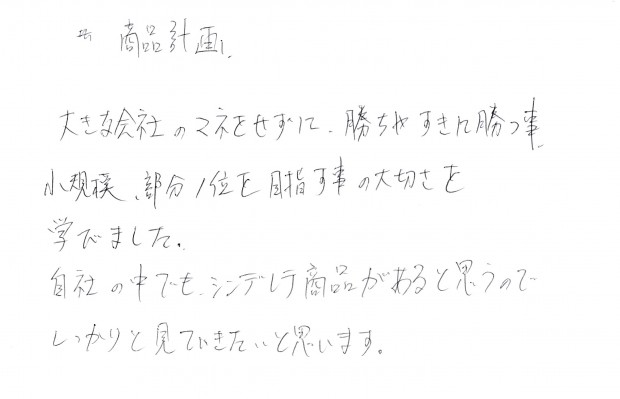 # 商品計画
大きな会社のマネをせずに、勝ちやすきに勝つ事、
小規模、部分1位を目指す事の大切さを
学でました。
自社の中でも、シンデレラ商品があると思うので
しっかりと見ていきたいと思います。